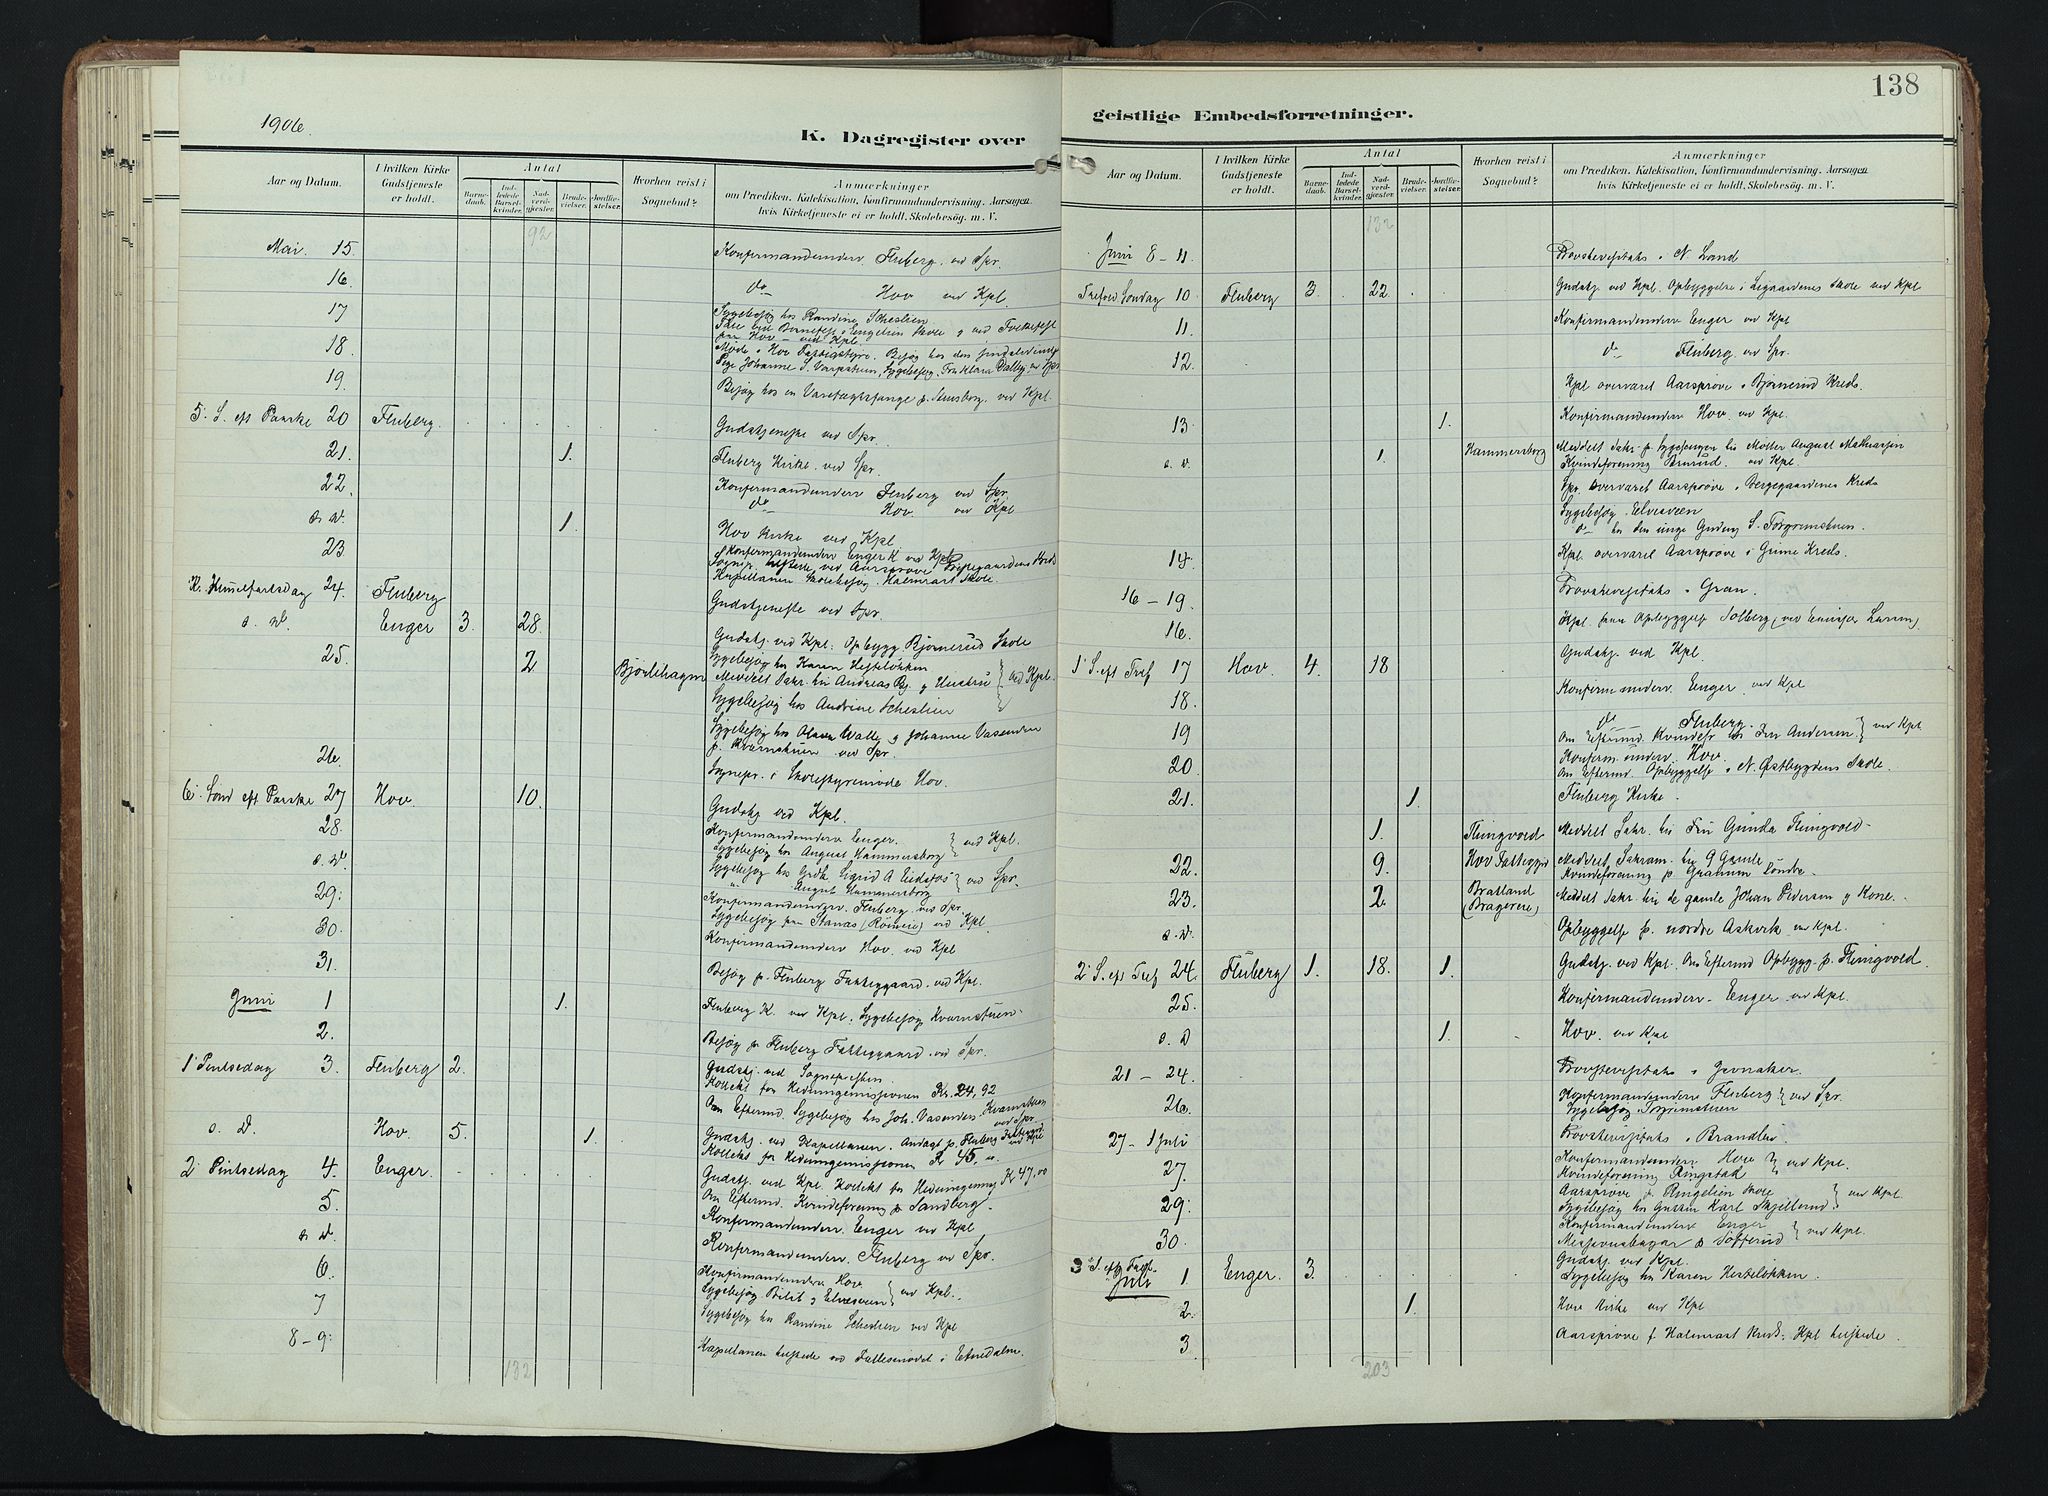 1906.
K. Dagregister over
Aar og Datum.
I hvilken Kirke Gudstjeneste er holdt.
Antal
Barnedaab.
Indledede Barselkvinder.
Nadverdgjester.
Brudevielser.
Jordfæstelser.
Hvorhen reist i Sognebud?
Anmærkninger
om Prædiken, Katekisation, Konfirmandundervisning. Aarsagen
hvis Kirketjeneste ei er holdt. Skolebesøg. m. V.
92
Mai. 15. Konfirmandunderv Fluberg. ved Spr.
16. do Hov ved Kpl.
17 Sygebesøg hos Randine Scheslien
18. Møde i Hov Fattigstyre. Besøg hos den
19. Besøg hos en Varetægtsfange p. ved Kpl.
5. S. eft Paaske 20 Fluberg. Gudstjeneste ved Spr.
21. 1. Fluberg Kirke. ved Spr.
22. Konfirmandunderv Fluberg ved Spr.
do Hov ved Kpl
s. d. 1. Hov Kirke ved Kpl.
23 Konfirmandunderv Enger K ved Kpl.
Kapellanen Skolebesøg. Halmrast Skole.
Kr. Himmelfartsdag 24. Fluberg Gudstjeneste ved Spr.
s. d. Enger 3. 28. Gudstj. ved Kpl. Opbygg Bjørnerud Skole
25. 2 Bjørlihagen Sygebesøg hos Karen Hesteløkken
Meddelt Sakr. hii Andreas Bj. g Hustru } ved Kpl.
Sygebesøg hos Andrine Scheslien
Sygebesøg hos Olava Walle g Johanne Vasenden
p. Kvarnstuen ved Spr.
26. Sognepr. i Skolestyremøde Hov.
6. Sønd eft Paaske 27 Hov. 10. Gudstj ved Kpl.
28. Konfirmandunderv Enger.
Sygebesøg hos August Hammersborg } ved Kpl.
s. d. Sygebesøg hos Sigrid A
August Hammersborg } ved Spr.
29. Konfirmandunderv. Fluberg. ved Spr.
Sygebesøg paa Stanas (Römeie) ved Kpl.
30. Konfirmandunderv Hov. ved Kpl
31. Besøg p. Fluberg Fattiggaard. ved Kpl.
Juni 1 1. Fluberg K. ved Kpl. Sygebesøg Kvarnstuen.
2. Besøg p. Fluberg Fattiggaard. ved Spr.
1' Pintsedag 3. Fluberg 2. Gudstj. ved Sognepresten.
Kollekt for Hedningemissionen Kr. 24,92
Om Efterm. Sygebesøg hos Joh. Vasenden Kvarnstuen ved Spr.
s. d. Hov. 5. 1. Gudstj. ved Kapellanen. Andagt p. Fluberg Fattiggrd ved Kpl
Kollekt for Hedningemissionen Kr 45.
2' Pintsedag 4. Enger. Gudstj. ved Kpl. Kollekt for Hedningemis Kr 47,00
5. Om Efterm. Kvindeforening p. Sandberg.
Konfirmandunderv. Enger ved Kpl
s. d. Konfirmandunderv. Fluberg ved Spr.
6. Konfirmandunderv Hov
Sygebesøg g Elvesveen } ved Kpl.
7 Sygebesøg hos Randine Scheslien ved Kpl
8-9. Kapellanen ved Fællesmødet i Etnedalen.
132
138
geistlige Embedsforretninger.
Aar og Datum.
I hvilken Kirke Gudstjeneste er holdt.
Antal
Barnedaab.
Indledede Barselkvinder.
Nadverdgjester.
Brudevielser.
Jordfæstelser.
Hvorhen reist i Sognebud?
Anmærkninger
om Prædiken, Katekisation, Konfirmandundervisning. Aarsagen
hvis Kirketjeneste ei er holdt. Skolebesøg. m. V.
132
Juni 8-11. Provstevisitats i N Land
Trefold Søndag 10 Fluberg 3. 22. Gudstj. ved Kpl. Opbyggelse i Skole ved Kpl
11. Konfirmandunderv Enger ved Kpl
12. do Fluberg ved Spr.
Kpl overværet Aarsprøve i Bjørnerud Kreds.
13. 1. Konfirmandunderv Hov ved Kpl.
s. d. 1. Hammersborg Meddelt Sakr. p. Sygesengen hii August Mathiassen
Kvindeforening ved Kpl.
Spr. overværet Aarsprøve i Kreds
Sygebesøg. Elvesveen
do hos den unge
14. Kpl. overværet Aarsprøve i Grime Kreds.
16-19. Provstevisitats i Gran.
16. Kpl paa Opbyggelse Solberg
1' S. eft Tref 17 Hov. 4. 18 Gudstj. ved Kpl.
18. Konfirm underv. Enger ved Kpl
19 do Fluberg.
Om Efterm. Kvindefr hos Fru Andersen } ved Kpl
20. Konfirm. underv. Hov.
Om Efterm. Opbyggelse i N. Østbygdens Skole.
21. 1. Fluberg Kirke.
1. Flingvold Meddelt Sakr. hii Fru Gunda Flingvold.
22. 9. Hov Fattiggrd Meddelt Sakram. hii 9 Gamle
Kvindeforening p. Granum Söndre.
23. 2. Bratland (Brageneie) Meddelt Sakr. hii de gamle Johan Pedersen g Kone.
s. d. Opbyggelse p. nordre Askvik ved Kpl.
2' S. eft Tref 24. Fluberg 1. 18. 1. Gudstj. ved Kpl. Om Efterm Opbygg. p. Flingvold.
25. Konfirmandunderv. Enger ved Kpl.
s. d 1. Hov. ved Kpl
21-24. Provstevisitats i Jevnaker.
26. Konfirmandunderv Fluberg
Sygebesøg } ved Spr.
27-1 Juli Provstevisitats i Brandbu.
27. Konfirmandunderv Hov
Kvindeforening Ringstad } ved Kpl.
29. Aarsprøve p. Ringelien Skole
Sygebesøg hos Karl Skjellerud } ved Kpl.
30. Konfirmandunderv Enger
Missionsbazar p. Sofferud } ved Kpl.
3' S. eft Tref. Juli 1 Enger. 3. Gudstj. ved Kpl.
Sygebesøg hos Karen Hesteløkken.
2. 1. Hov Kirke ved Kpl
3 Aarsprøve f. Halmrast Kreds. Kpl
203